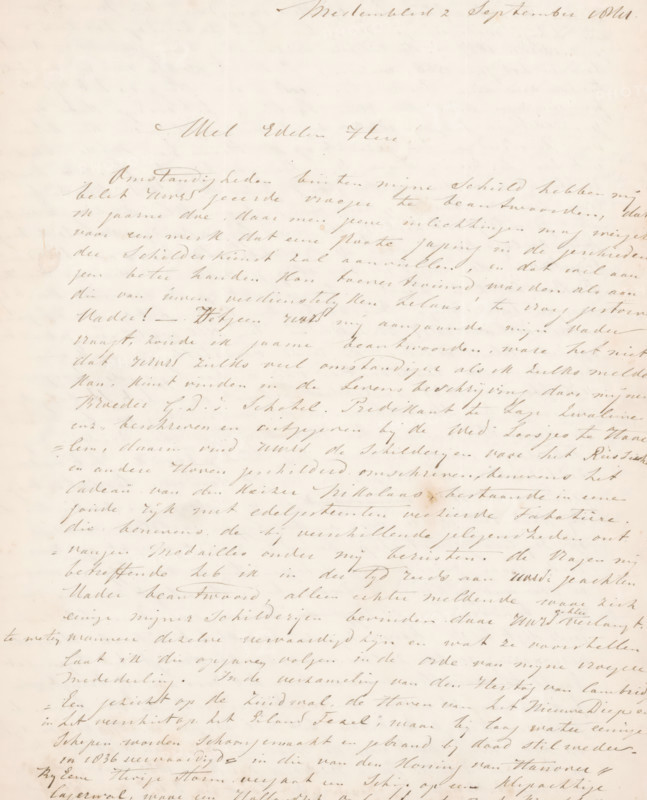 Medemblik 2 September 1841.
Wel Edelen Heer
Omstandigheden buiten mijne Schuld hebben mij
belet UwEd geerde vragen te beantwoorden, dat
ik gaarne doe, daar men geene inlichtingen mag weigeren
voor een werk dat eene groote gaping in de geschiedenis
der Schilderkunst zal aanvullen, en dat wel aan
geen beter handen kan toevertrouwd worden als aan
die van uwen verdienstelyken helaas! te vroeg gestorven
Vader! — Hetgeen UwEd mij aangaande mijn vader
vraagt, zoude ik gaarne beantwoorden, ware het niet
dat UwEd zulks veel omstandiger als ik zulks melde
kan, kunt vinden in de Levensbeschrijving door mijnen
Broeder G.D.J. Schotel, Predikant te Lage Zwaluwe
enz. beschreven en uitgegeven bij de Wed Loosjes te Haar
=lem, daarin vind UwEd de Schilderyen voor het Russische
en andere Hoven geschilderd omschreven benevens het
Cadeau van den Keizer Nikolaas, bestaande in eene
goude rijk met edelgesteenten versierde Tabatière,
die benevens de bij verschillende gelegenheden ont
=vangen Medailles onder mij berusten. de Vragen mij
betreffende heb ik in der tyd reeds aan UwEds geachten
Vader beantwoord, alleen echter meldende waar zich
eenige mijner Schilderijen bevinden daar UwEd echter verlangt,
te weten wanneer dezelve vervaardigd zijn en wat ze voorstellen
laat ik de opgaven volgen in de orde van mijne vroegere
mededeeling. In de verzameling van den Hertog van Cambridge
=Een gezicht op de Zuidwal, de Haven van het Nieuwe Diep en
in het verschiet op het Eiland Texel; waar bij laag water eenige
Schepen worden schoongemaakt en gebrand bij dood stil weder
in 1836 vervaardigd = in die van den Koning van Hanover
Bij Eene Hevige Storm vergaat een Schip op een klipachtige
Lagerwal, waar een